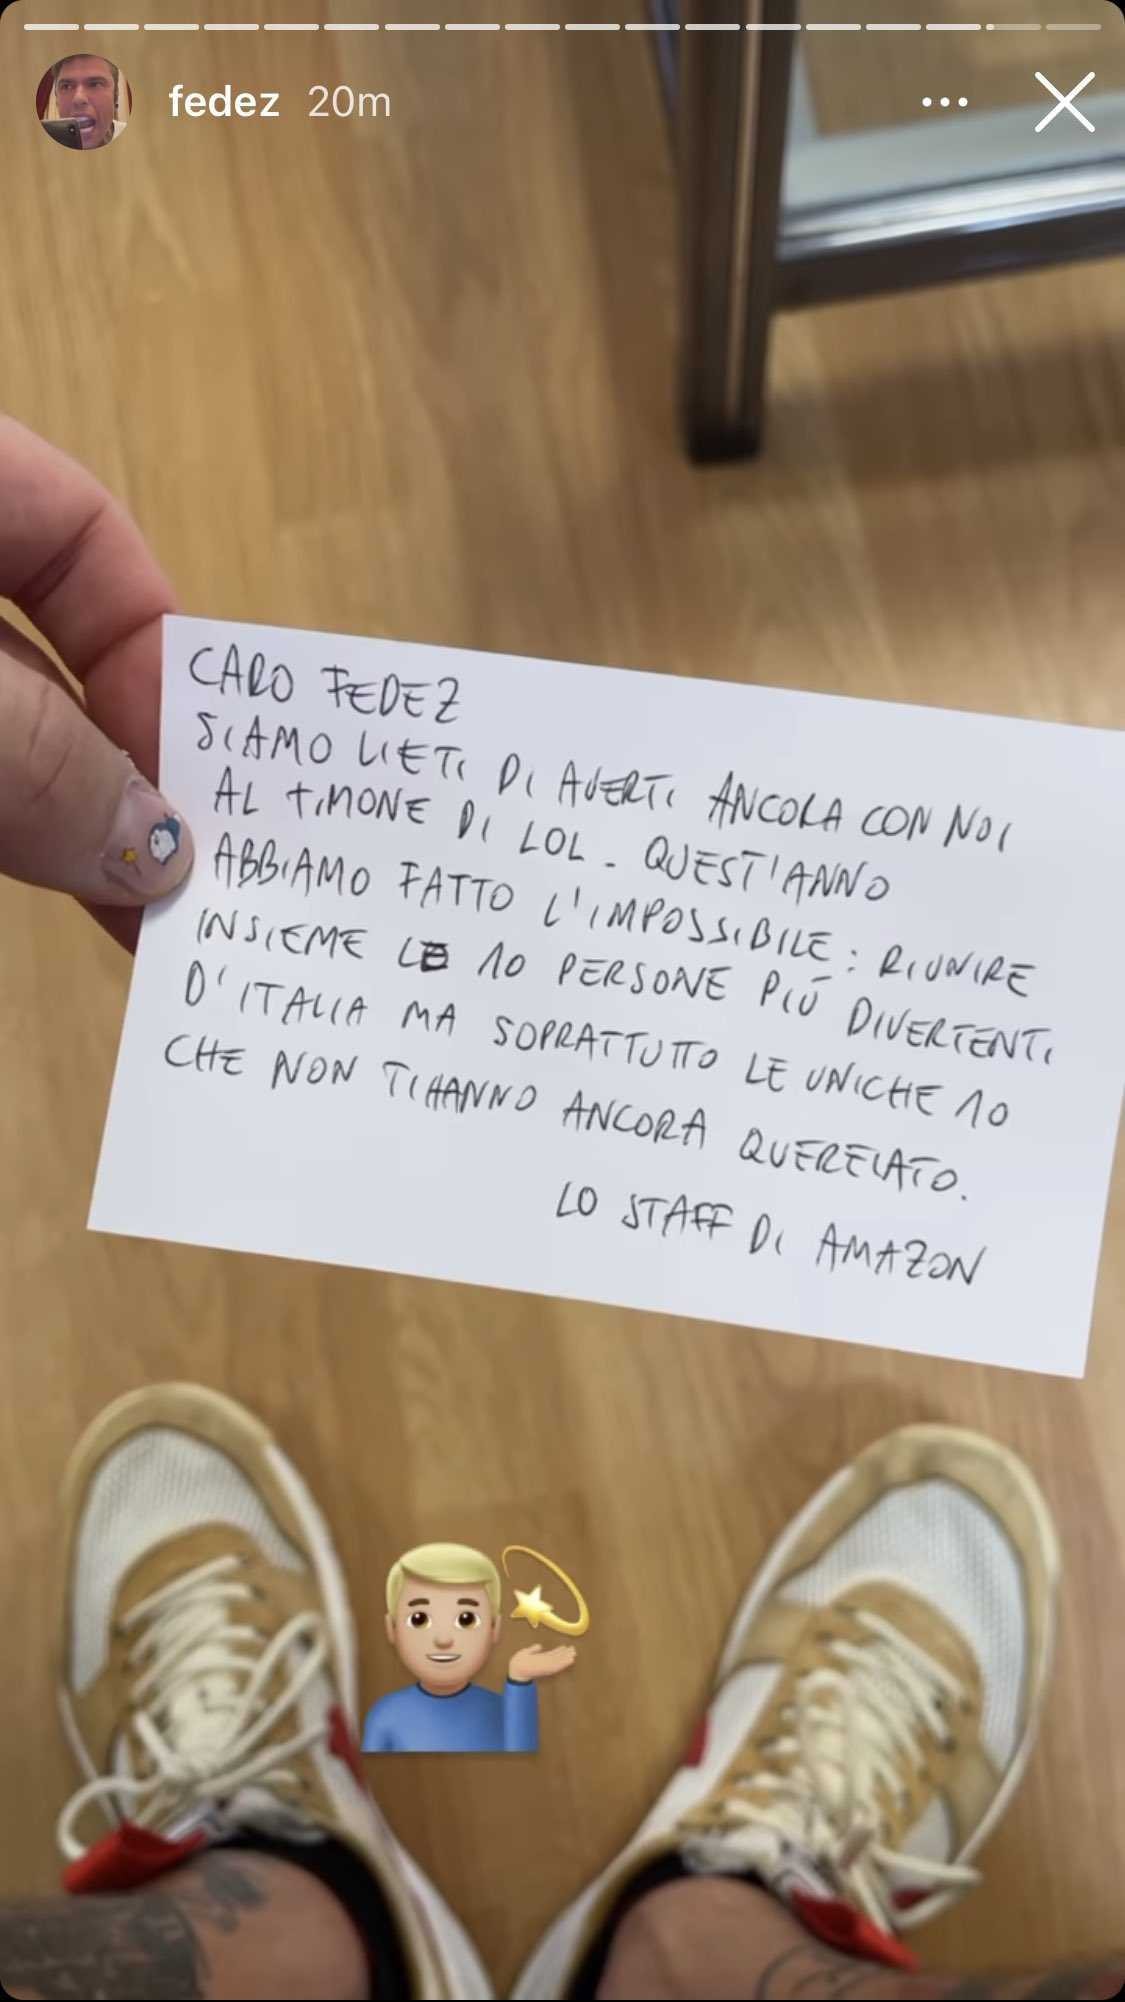 fedez 20m
CARO FEDEZ
SIAMO LIETI DI AVERTI ANCORA CON NOI
AL TIMONE DI LOL. QUEST'ANNO
ABBIAMO FATTO L'IMPOSSIBILE: RIUNIRE
INSIEME LE 10 PERSONE PIÚ DIVERTENTI
D'ITALIA MA SOPRATTUTTO LE UNICHE 10
CHE NON TI HANNO ANCORA QUERELATO.
LO STAFF DI AMAZON